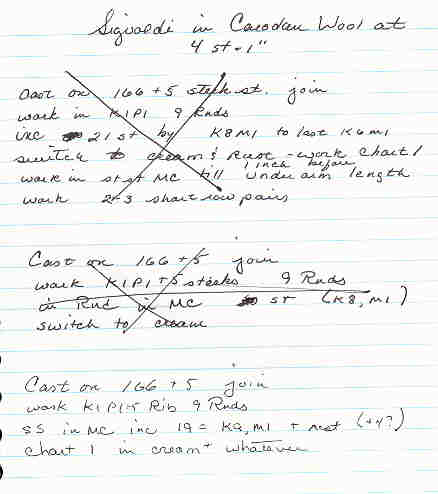 Sigvaldi in Carodan Wool at
4 st = 1"
Cast on 166 + 5 steek st. join
work in K1P1 9 Rnds
inc 21 st by K8M1 to last K6M1
switch to cream & Rust - work Chart 1
work in st st MC till 1 inch before underarm length
work 2-3 short row pairs
Cast on 166 + 5 join
work K1P1 + 5 steeks 9 Rnds
in Rnd in MC st (K8, M1)
switch to cream
Cast on 166 + 5 join
work K1P1 + 5 Rib 9 Rnds
SS in MC inc 19 = K9, M1 + rest (+4?)
Chart 1 in cream + whatever